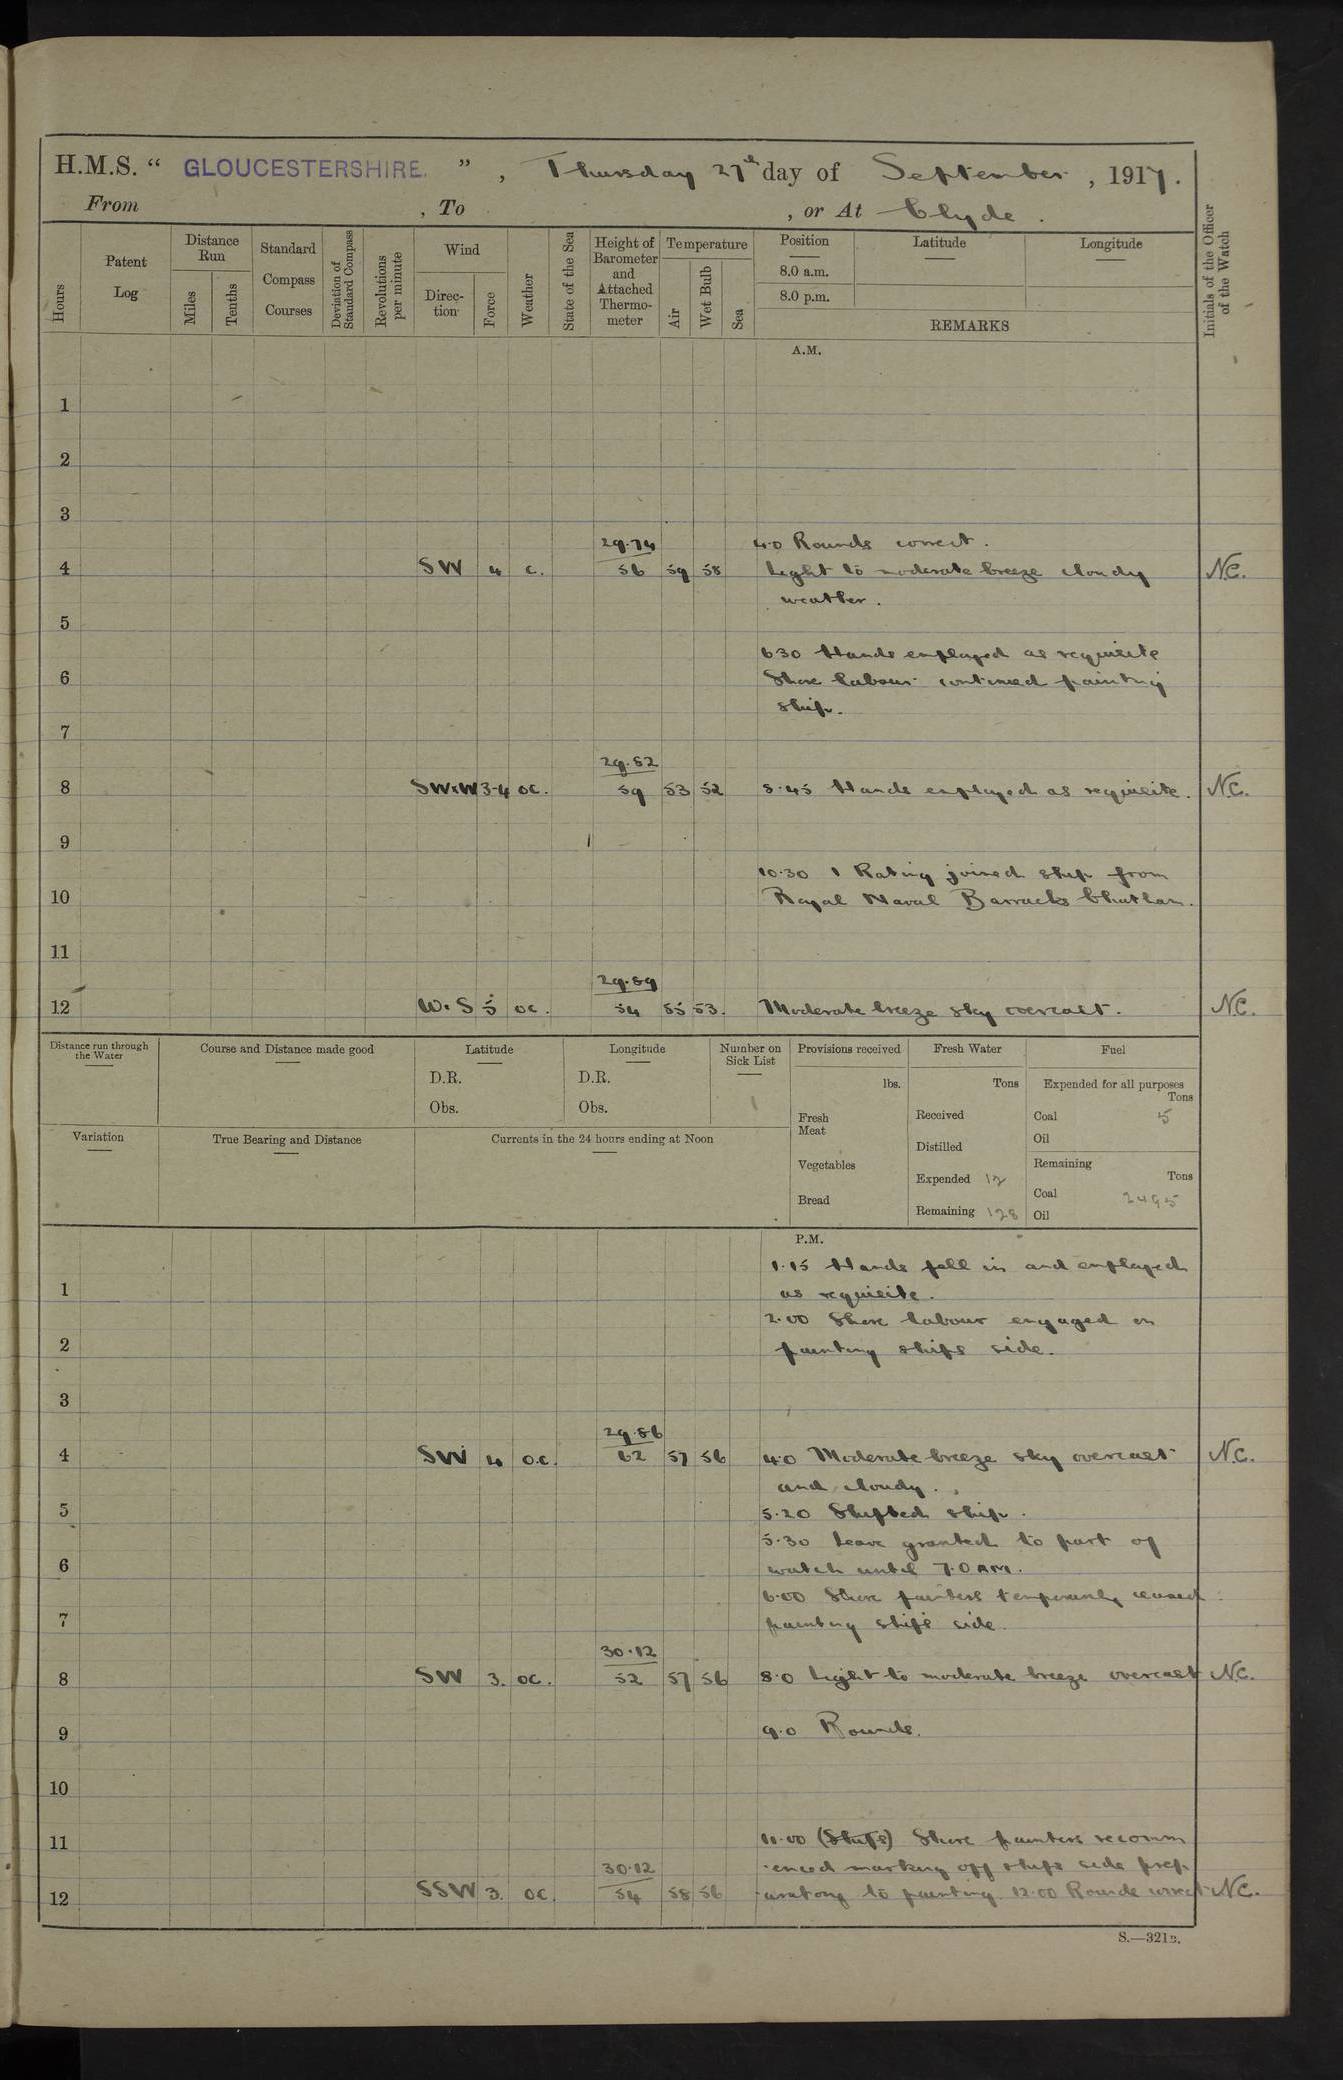 H.M.S. “ GLOUCESTERSHIRE. ” , Thursday 27th day of September , 1917.
From , To , or At Clyde .
Hours
Patent Log
Distance Run
Miles
Tenths
Standard Compass Courses
Deviation of Standard Compass
Revolutions per minute
Wind
Direc-tion
Force
Weather
State of the Sea
Height of Barometer and Attached Thermo-meter
Temperature
Air
Wet Bulb
Sea
Position
8.0 a.m.
8.0 p.m.
Latitude
Longitude
REMARKS
Initials of the Officer of the Watch
A.M.
1
2
3
29.74 4.0 Rounds correct.
4 SW 4 c. 56 59 58 Light to moderate breeze cloudy N.C.
weather.
5
6.30 Hands employed as requisite
6 Shore labour continued painting
ship.
7
29.52
8 SWxW 3-4 oc. 59 53 52 8.45 Hands employed as requisite. N.C.
9
10.30 1 Rating joined ship from
10 Royal Naval Barracks Chatham.
11
29.59
12 W.S 5 oc. 54 55 53. Moderate breeze sky overcast. N.C.
Distance run through the Water
Course and Distance made good
Latitude
D.R.
Obs.
Longitude
D.R.
Obs.
Number on Sick List
1
Provisions received
lbs.
Fresh Meat
Vegetables
Bread
Fresh Water
Tons
Received
Distilled
Expended 12
Remaining 128
Fuel
Expended for all purposes
Tons
Coal 5
Oil
Remaining
Tons
Coal 2495
Oil
Variation
True Bearing and Distance
Currents in the 24 hours ending at Noon
P.M.
1.15 Hands fell in and employed
1 as requisite.
2.00 Shore labour engaged on
2 painting ships side.
3
29.86
4 SW 4 o.c. 62 57 56 4.0 Moderate breeze sky overcast N.C.
and cloudy.
5 5.20 Shifted ship.
5.30 Leave granted to part of
6 watch until 7.0 AM.
6.00 Shore painters temporarily ceased
7 painting ships side.
30.12
8 SW 3. oc. 52 57 56 8.0 Light to moderate breeze overcast N.C.
9 9.0 Rounds.
10
11 11.00 (Ships) Shore painters recomm
30.12 -enced marking off ships side prep
12 SSW 3. oc. 54 58 56 -aratory to painting. 12.00 Rounds correct N.C.
S.—321B.